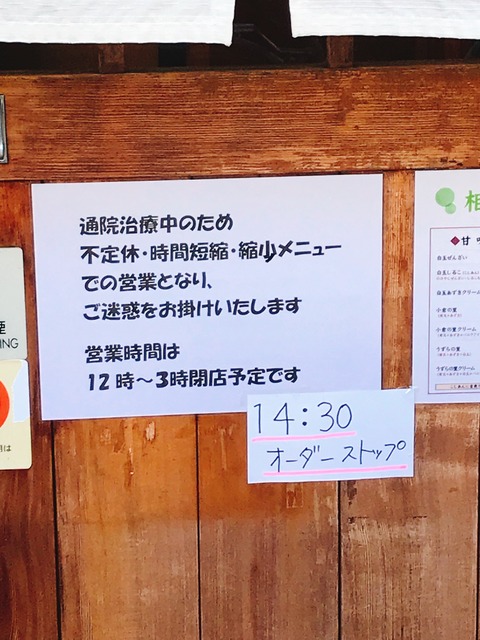 通院治療中のため
不定休・時間短縮・縮小メニュー
での営業となり、
ご迷惑をお掛けいたします
営業時間は
12時～3時閉店予定です
14:30
オーダーストップ
相
甘
白玉ぜんざい
白玉しるこ
白玉あずきクリーム
小倉の里
小倉の里クリーム
うずらの里
うずらの里クリーム
煙
ING
月は